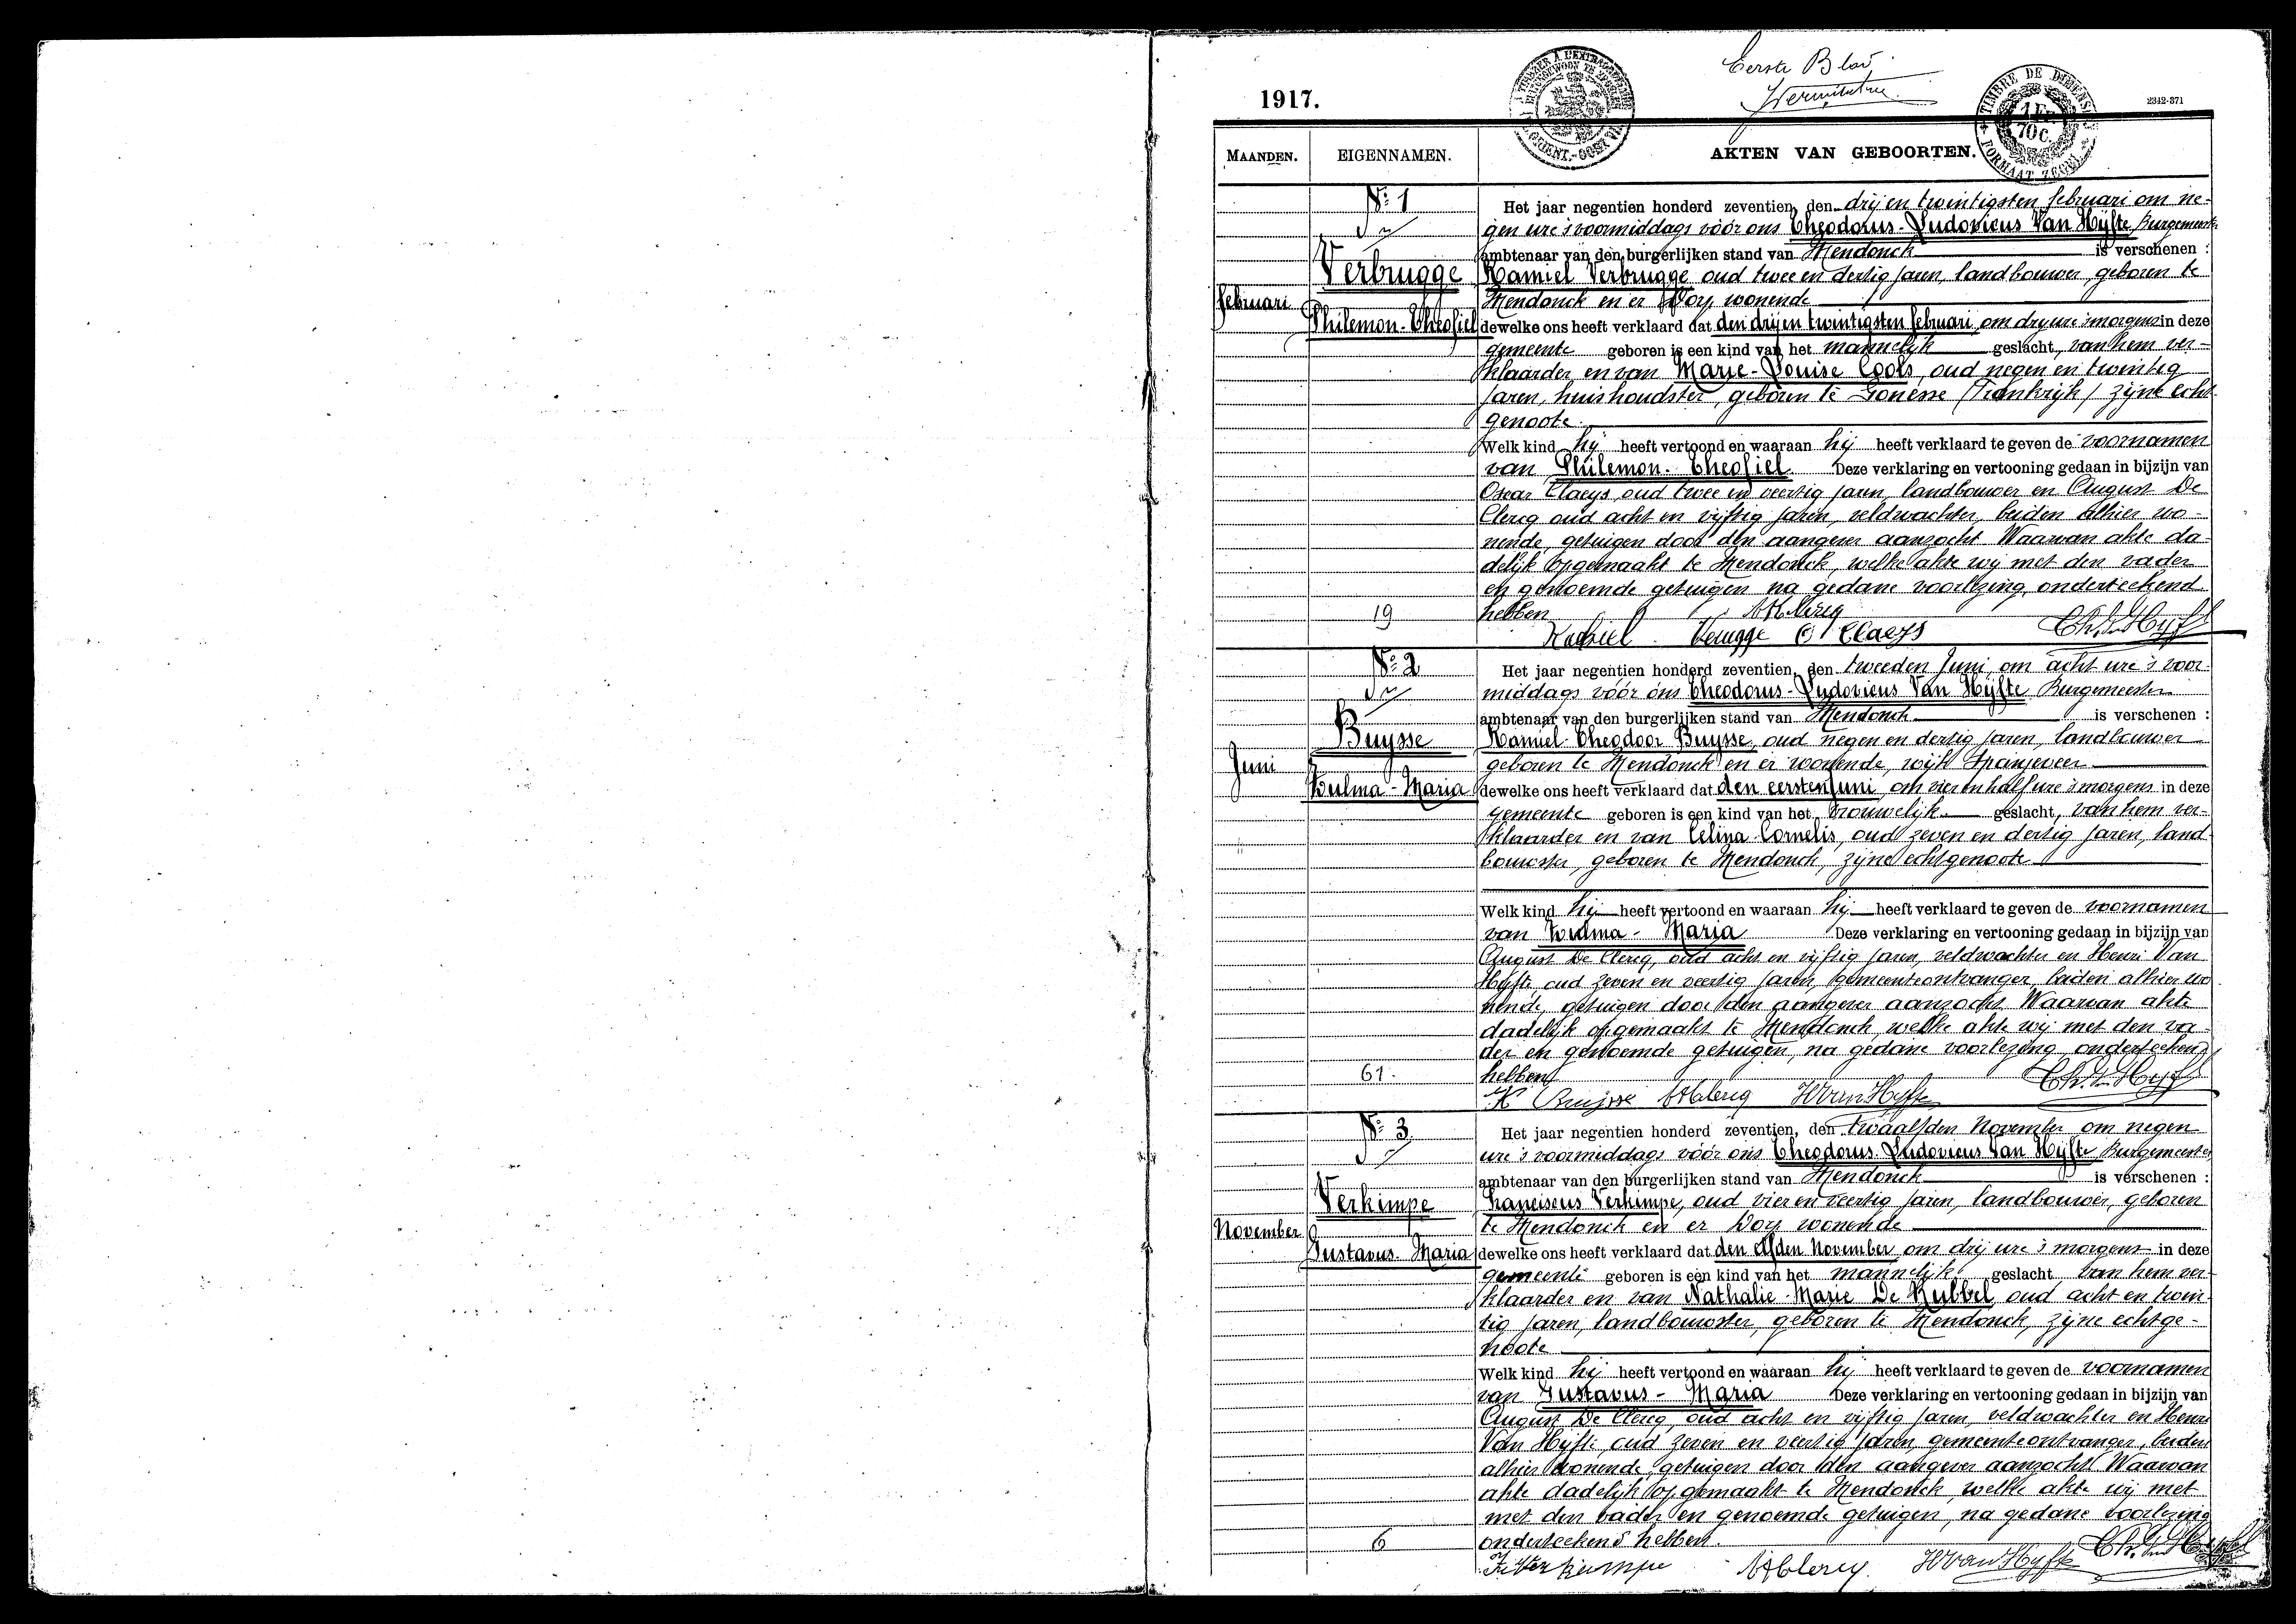 Eerste Blad
1917.
2342-371
TIMBRE DE DIMENSION
1 Fr. 70 C.
FORMAAT ZEGEL
MAANDEN. EIGENNAMEN. AKTEN VAN GEBOORTEN.
N° 1
Verbrugge
Februari
Philemon-Theofiel
19
Het jaar negentien honderd zeventien, den drij en twintigsten februari om ne-
gen ure 's voormiddags vóór ons Theodorus-Ludovicus Van Hyfte Burgemeester
ambtenaar van den burgerlijken stand van Mendonck is verschenen :
Kamiel Verbrugge oud twee en dertig jaren, landbouwer, geboren te
Mendonck en er Dorp wonende
dewelke ons heeft verklaard dat den drijen twintigsten februari om dry ure 's morgens in deze
gemeente geboren is een kind van het mannelijk geslacht, van hem ver-
klaarder en van Marie-Louise Cools, oud negen en twintig
jaren, huishoudster, geboren te Gonesse (Frankrijk) zijne echt-
genoote.
Welk kind hij heeft vertoond en waaraan hij heeft verklaard te geven de voornamen
van Philemon-Theofiel Deze verklaring en vertooning gedaan in bijzijn van
Oscar Claeys oud twee en veertig jaren, landbouwer en August De
Clercq oud acht en vijftig jaren, veldwachter, beiden alhier wo-
nende, getuigen door den aangever aanzocht Waarvan akte da-
delijk opgemaakt te Mendonck, welke akte wij met den vader
en genoemde getuigen na gedane voorlezing, onderteekend
hebben
ADclercq
Kamiel Verugge O Claeys Th. V. Hyfte
N° 2
Buysse
Juni
Wulma-Maria
61.
Het jaar negentien honderd zeventien, den tweeden Juni, om acht ure 's voor-
middags vóór ons Theodorus-Ludovicus Van Hyfte Burgemeester
ambtenaar van den burgerlijken stand van Mendonck is verschenen :
Kamiel-Theodoor Buysse, oud negen en dertig jaren, landbouwer
geboren te Mendonck en er wonende, wijk Spanjeveer
dewelke ons heeft verklaard dat den eersten Juni om vier en half ure 's morgens in deze
gemeente geboren is een kind van het vrouwelijk geslacht, van hem ver-
klaarder en van Celina Cornelis, oud zeven en dertig jaren, land-
bouwster, geboren te Mendonck, zijne echtgenoote
Welk kind hij heeft vertoond en waaraan hij heeft verklaard te geven de voornamen
van Wulma-Maria Deze verklaring en vertooning gedaan in bijzijn van
August De Clercq, oud acht en vijftig jaren, veldwachter en Henri Van
Hyfte, oud zeven en veertig jaren, gemeenteontvanger, beiden alhier wo-
nende, getuigen door den aangever aanzocht Waarvan akte
dadelijk opgemaakt te Mendonck, welke akte wij met den va-
der en genoemde getuigen, na gedane voorlezing onderteekend
hebben
K Buijsse ADclercq H Van Hyfte Th. V. Hyfte
N° 3
Verkimpe
November
Gustavus-Maria
6
Het jaar negentien honderd zeventien, den twaalfden November om negen
ure 's voormiddags vóór ons Theodorus Ludovicus Van Hyfte Burgemeester
ambtenaar van den burgerlijken stand van Mendonck is verschenen :
Franciscus Verkimpe, oud vier en veertig jaren, landbouwer, geboren
te Mendonck en er Dorp wonende
dewelke ons heeft verklaard dat den elfden November om drij ure 's morgens in deze
gemeente geboren is een kind van het mannelijk geslacht van hem ver-
klaarder en van Nathalie Marie De Kubbel oud acht en twin-
tig jaren, landbouwster, geboren te Mendonck, zijne echtge-
noote
Welk kind hij heeft vertoond en waaraan hij heeft verklaard te geven de voornamen
van Gustavus-Maria Deze verklaring en vertooning gedaan in bijzijn van
August De Clercq, oud acht en vijftig jaren, veldwachter en Henri
Van Hyfte, oud zeven en veertig jaren, gemeenteontvanger, beiden
alhier wonende, getuigen door den aangever aanzocht Waarvan
akte dadelijk opgemaakt te Mendonck, welke akte wij met
met den vader en genoemde getuigen, na gedane voorlezing
onderteekend hebben.
Fr Verkimpe ADclercq. H Van Hyfte Th. V. Hyfte